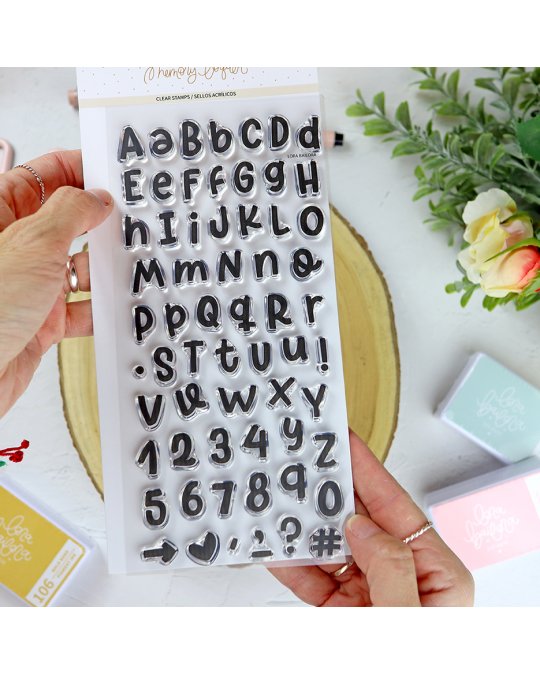 memory lovfer
CLEAR STAMPS / SELLOS ACRÍLICOS
LORA BAILORA
A a B b C c D d
E e F f G g H
h I i J K L O
M m N n o
P p Q q R r
. S T t U u !
V v W x Y
1 2 3 4 y Z
5 6 7 8 9 0
→ ♥ , ; ? #
lora bailora
lora bailora
lora bailora
106